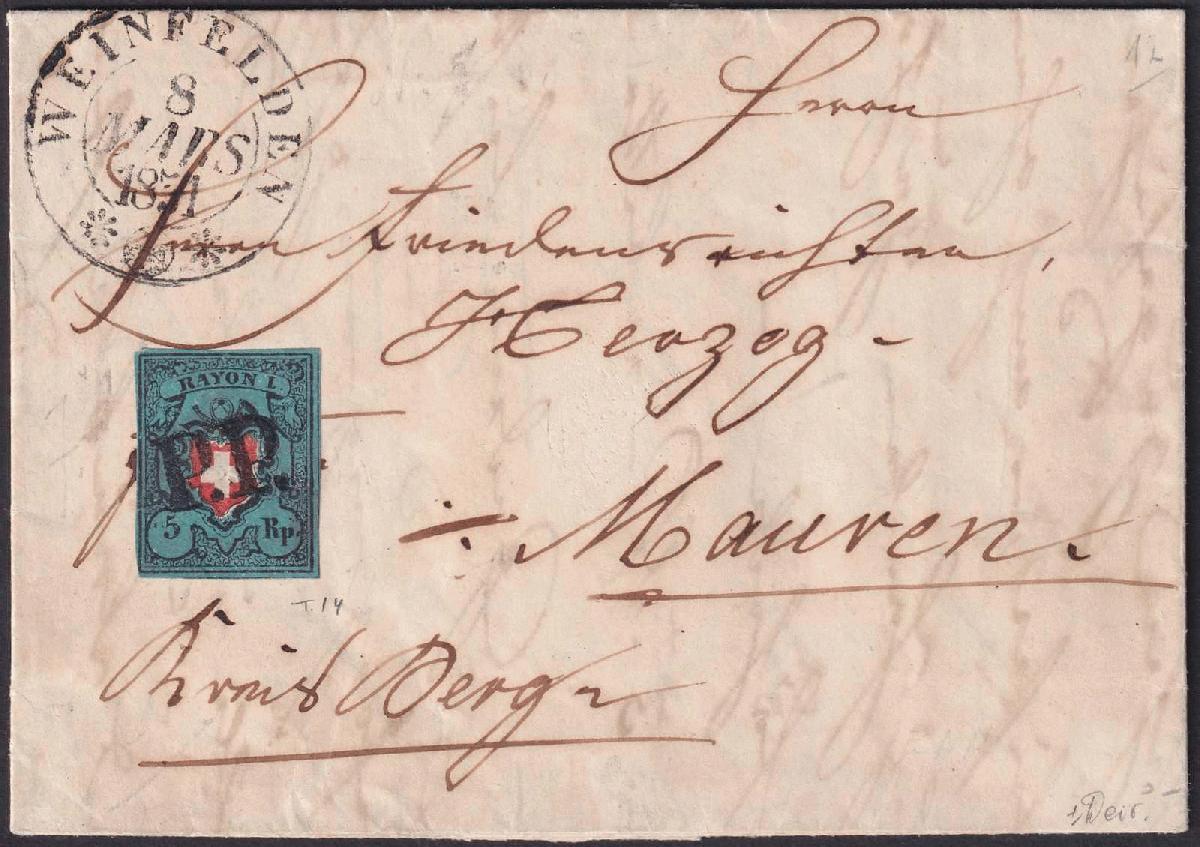 WEINFELDEN
8
MARS
1851
Herrn
Herrn Friedensrichter,
Herzog
RAYON I.
P.P.
5 Rp.
Mauren.
T.14
Kreis Berg
12